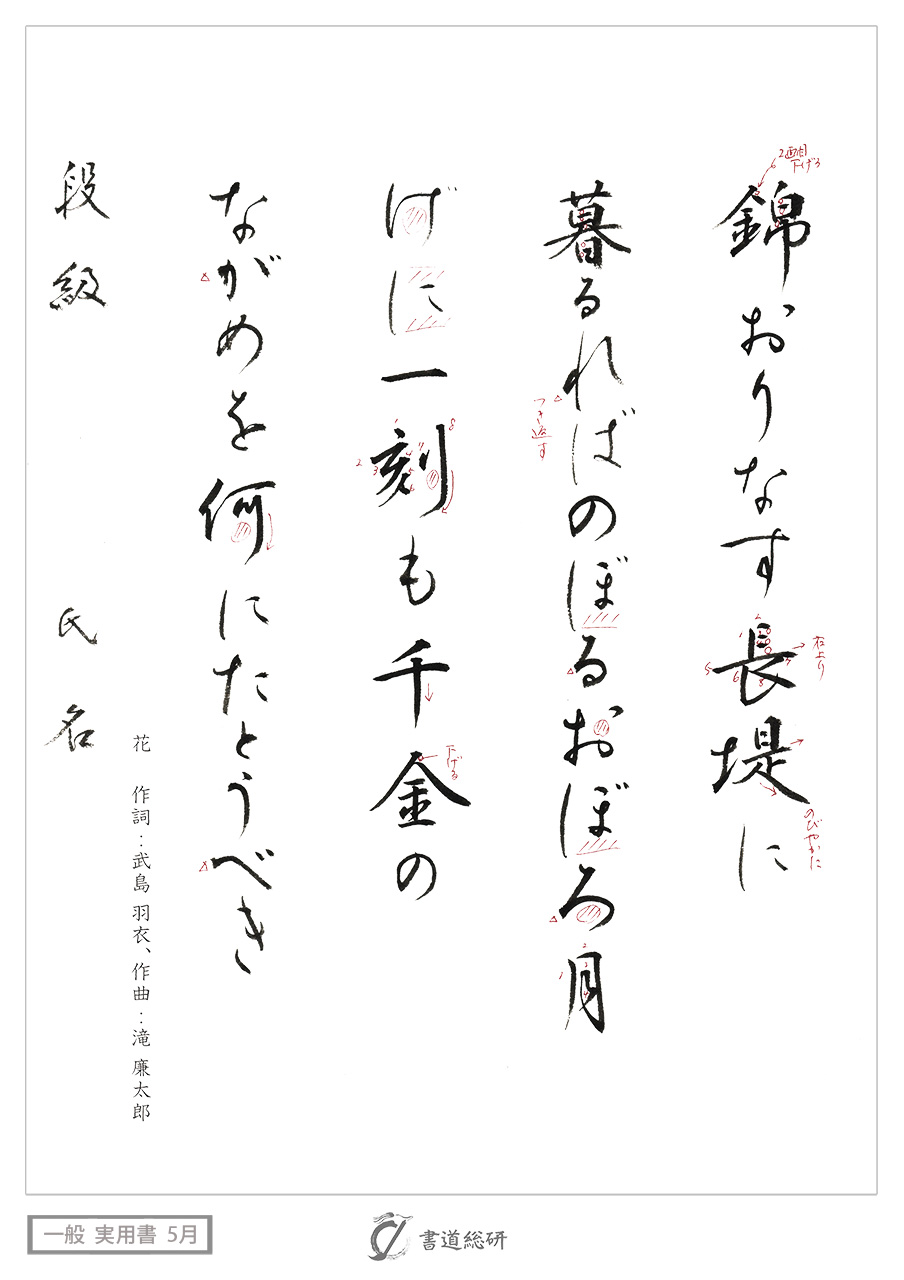 錦おりなす長堤に
暮るればのぼるおぼろ月
げに一刻も千金の
ながめを何にたとうべき
段級 氏名
花 作詞:武島 羽衣、作曲:滝 廉太郎
2画目
下げる
右上り
のびやかに
つき返す
下げる
一般 実用書 5月
書道総研